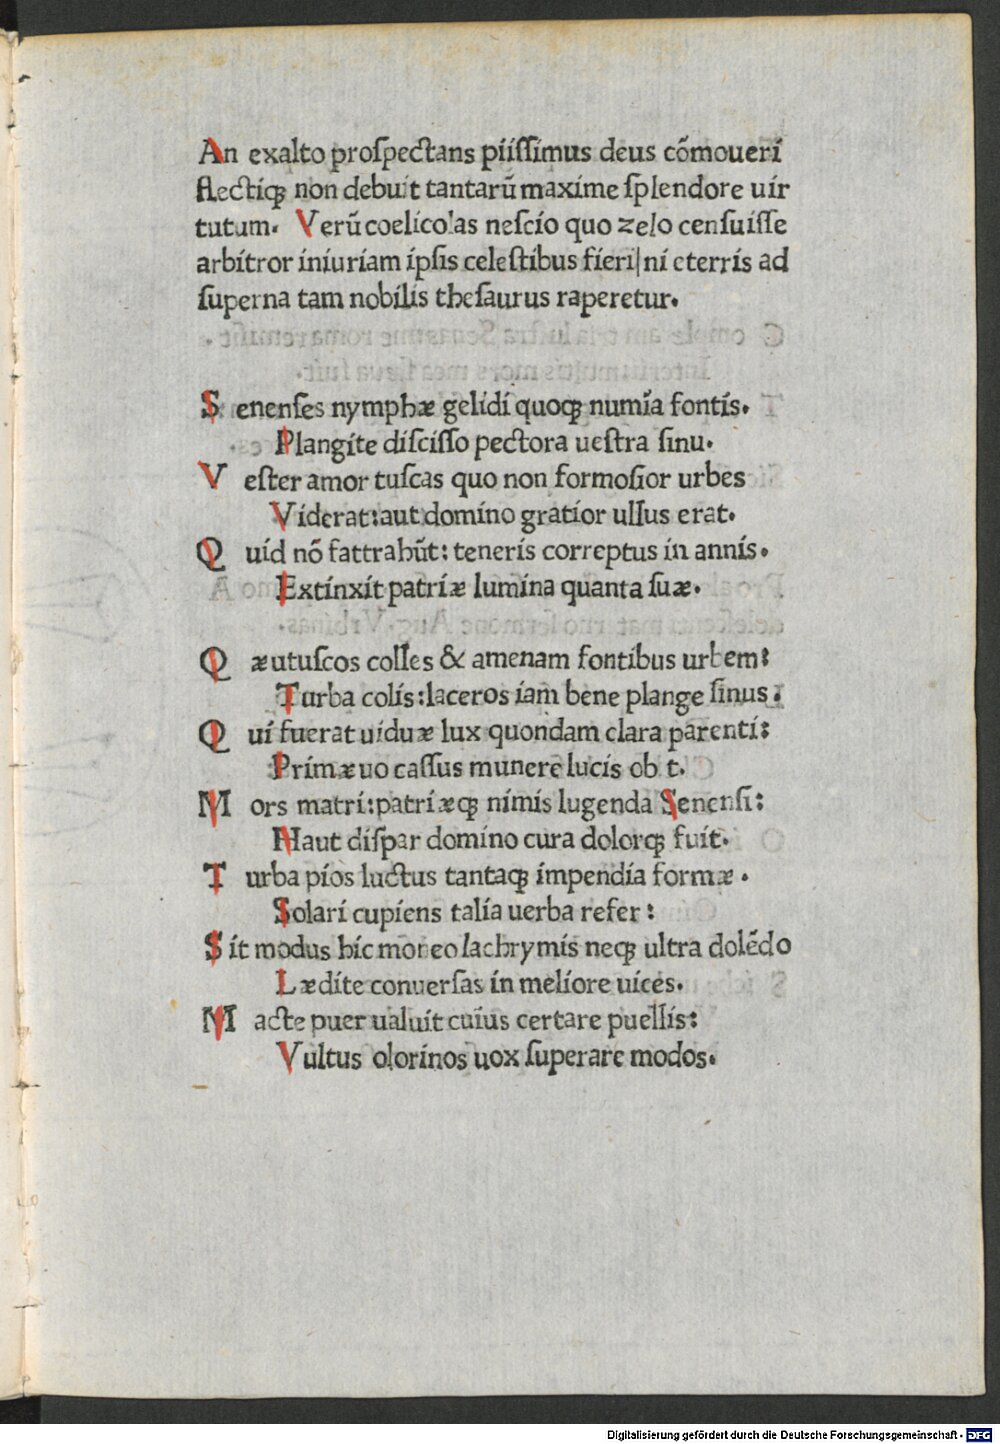 An exalto proſpectans piiſſimus deus cõmoueri
flectiqꝫ non debuit tantarũ maxime ſplendore uir
tutum. Verũ coelicolas neſcio quo zelo cenſuiſſe
arbitror iniuriam ipſis celeſtibus fieri|ni eterris ad
ſuperna tam nobilis theſaurus raperetur.
S enenſes nymphæ gelidi quoqꝫ numĩa fontis.
Plangite diſciſſo pectora ueſtra ſinu.
V eſter amor tuſcas quo non formoſior urbes
Viderat:aut domino gratior ullus erat.
Q uid nõ fattrahũt: teneris correptus in annis.
Extinxit patriæ lumina quanta ſuæ.
Q æutuſcos colles & amenam fontibus urbem:
Turba colis:laceros iam bene plange ſinus.
Q ui fuerat uiduæ lux quondam clara parenti:
Primæuo caſſus munere lucis ob t.
M ors matri:patriæqꝫ nimis lugenda Senenſi:
Haut diſpar domino cura dolorqꝫ fuit.
T urba pios luctus tantaqꝫ impendia formæ .
Solari cupiens talia uerba refer:
Sit modus hic moneo lachrymis neqꝫ ultra dolẽdo
Lædite conuerſas in meliore uices.
M acte puer ualuit cuius certare puellis:
Vultus olorinos uox ſuperare modos.
Digitalisierung gefördert durch die Deutsche Forschungsgemeinschaft - DFG